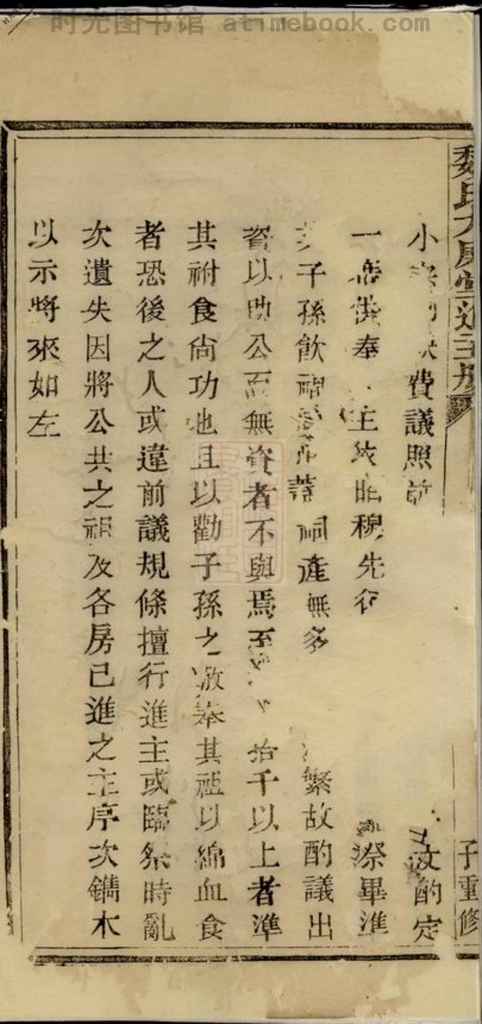 时光图书馆 atimebook.com
魏氏大房堂進主冊
子重修
小 費議照前 文酌定
一 奉 主 昭穆先 祭畢準
子孫飲 祠產無多 繁故酌議出
資以助公而無資者不與焉至 拾千以上者準
其祔食尚功也且以勸子孫之 奉其祖以綿血食
者恐後之人或違前議規條擅行進主或臨祭時亂
次遺失因將公共之祖及各房已進之主序次鐫木
以示將來如左